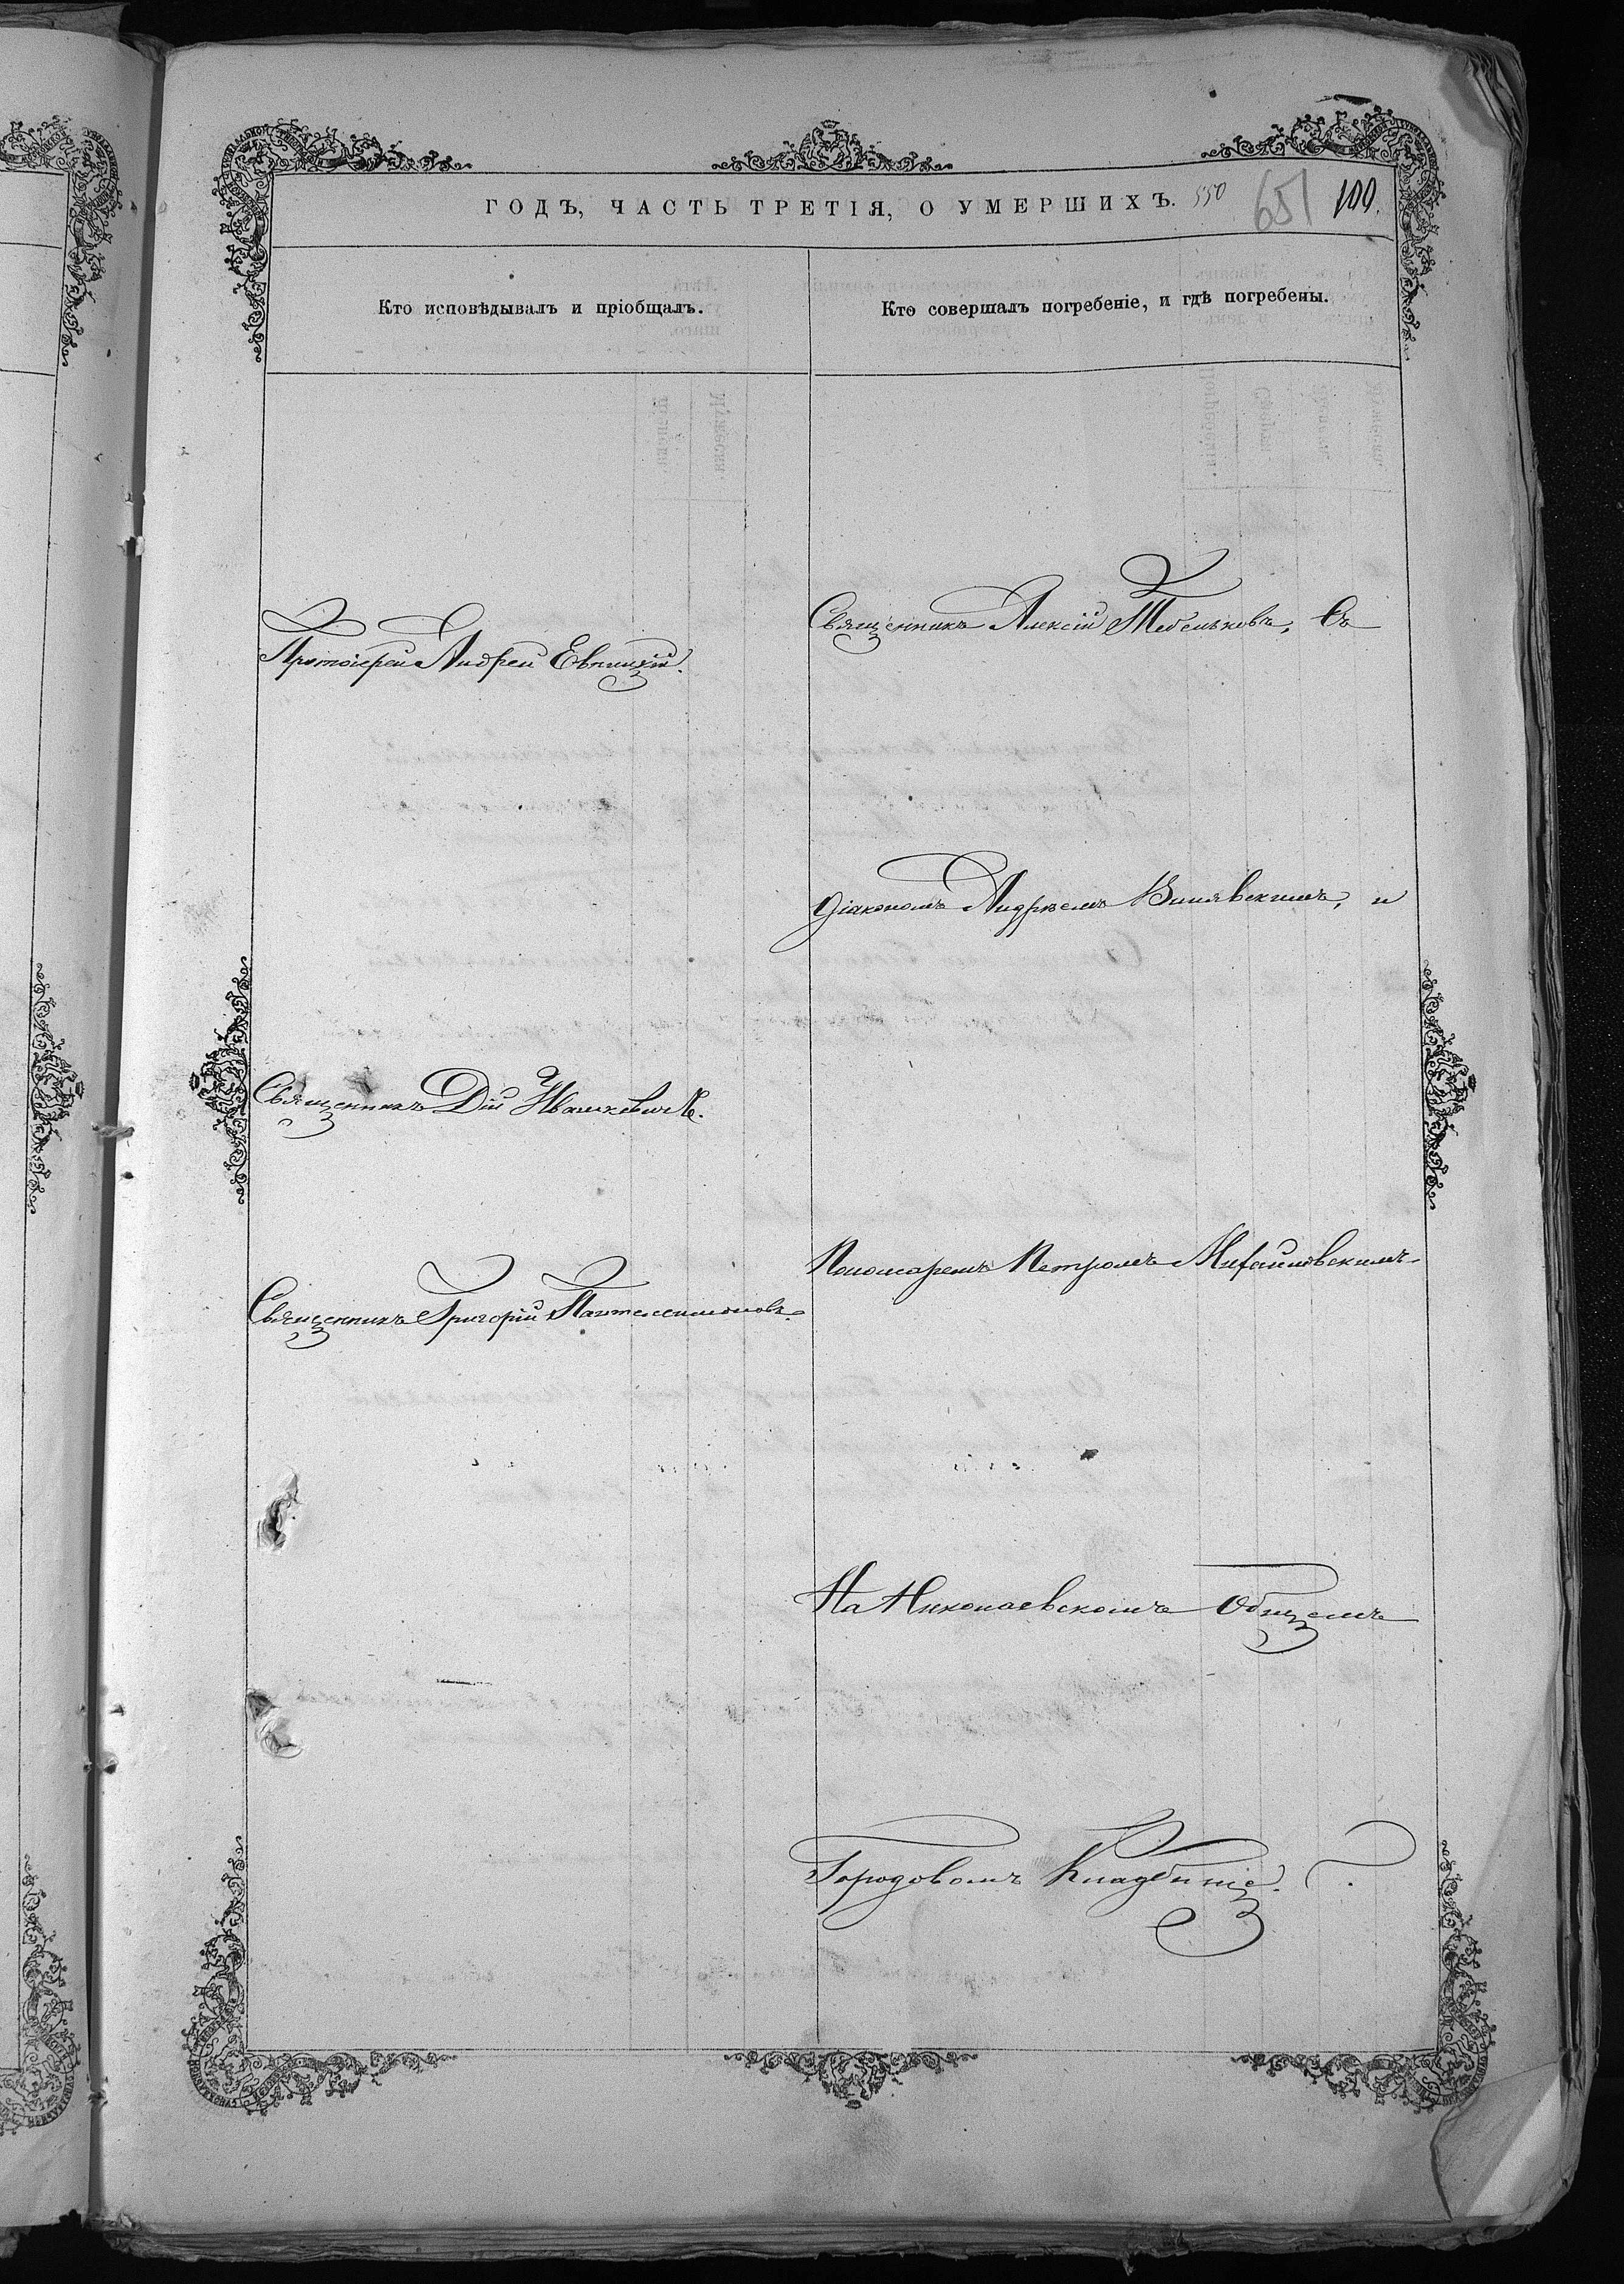 ГОДЪ, ЧАСТЬ ТРЕТІЯ, О УМЕРШИХЪ. 550 651 100.
Кто исповѣдывалъ и пріобщалъ.
Кто совершалъ погребеніе, и гдѣ погребены.
Протоіерей Андрей
Священникъ Дій Ивашкевичъ.
Священникъ Григорій Пантелеимоновъ.
Священникъ Алексій Тебеньковъ, Съ
діакономъ Андреемъ Винявскимъ, и
Пономаремъ Петромъ Михайловскимъ
На Николаевскомъ Общемъ
Городовомъ Кладбищѣ.